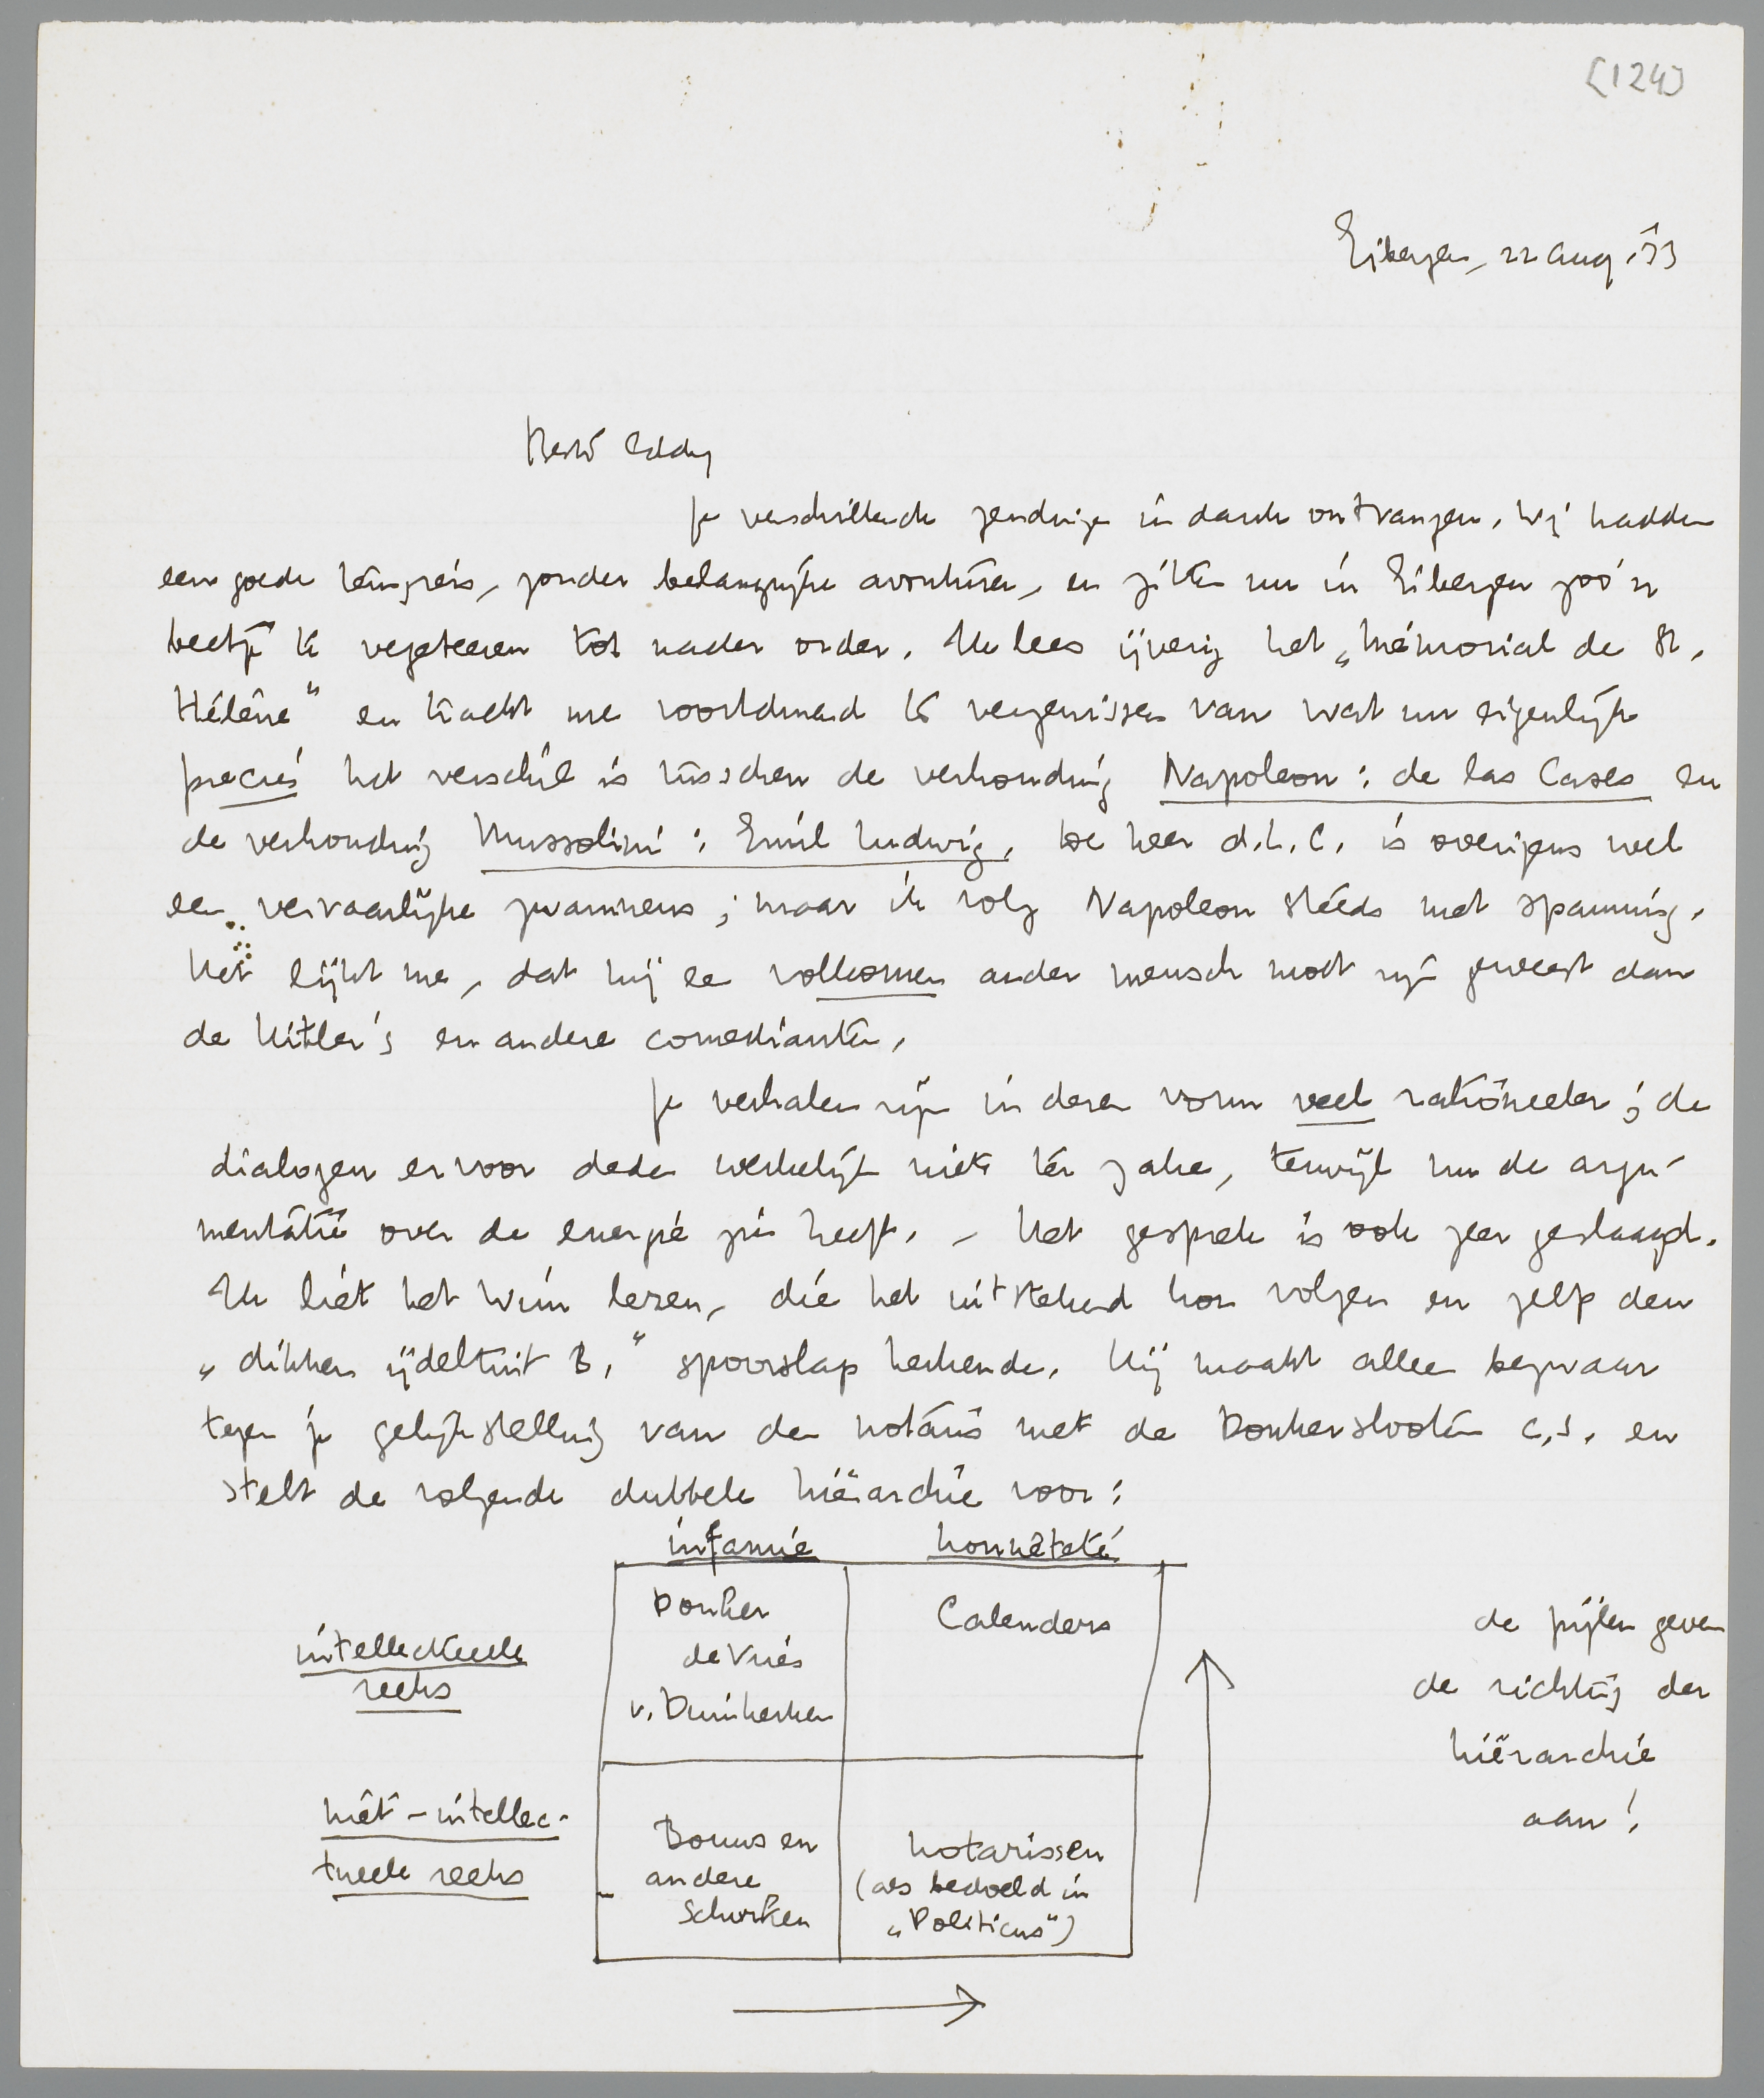 [124]
Eibergen, 22 Aug. '33
Beste Eddy
Je verschillende zendingen in dank ontvangen. Wij hadden
een goede terugreis, zonder belangrijke avonturen, en zitten nu in Eibergen zoo'n
beetje te vegeteeren tot nader order. Ik lees ijverig het „Mémorial de St.
Hélène" en tracht me voortdurend te vergewissen van wat nu eigenlijk
precies het verschil is tusschen de verhouding Napoleon : de las Cases en
de verhouding Mussolini : Emil Ludwig. De heer d.L.C. is overigens wel
een vervaarlijke zwammens; maar ik volg Napoleon steeds met spanning.
Het lijkt me, dat hij een volkomen ander mensch moet zijn geweest dan
de Hitler's en andere comedianten.
Je verhalen zijn in dezen vorm veel rationeeler; de
dialogen ervoor deden werkelijk niets ter zake, terwijl nu de argu-
mentatie over de energie zin heeft. – Het gesprek is ook zeer geslaagd.
Ik liet het Wim lezen, die het uitstekend kon volgen en zelfs den
„dikken ijdeltuit B." spoorslags herkende. Hij maakt alleen bezwaar
tegen je gelijkstelling van den notaris met de Donkerslooten c.s. en
stelt de volgende dubbele hiërarchie voor:
infamie honnêteté
intellectueele
reeks
Donker
de Vries
v. Duinkerken
Calenders
de pijlen geven
de richting der
hiërarchie
aan!
niet-intellec-
tueele reeks
Bouws en
andere
Schurken
notarissen
(als bedoeld in
„Politicus")